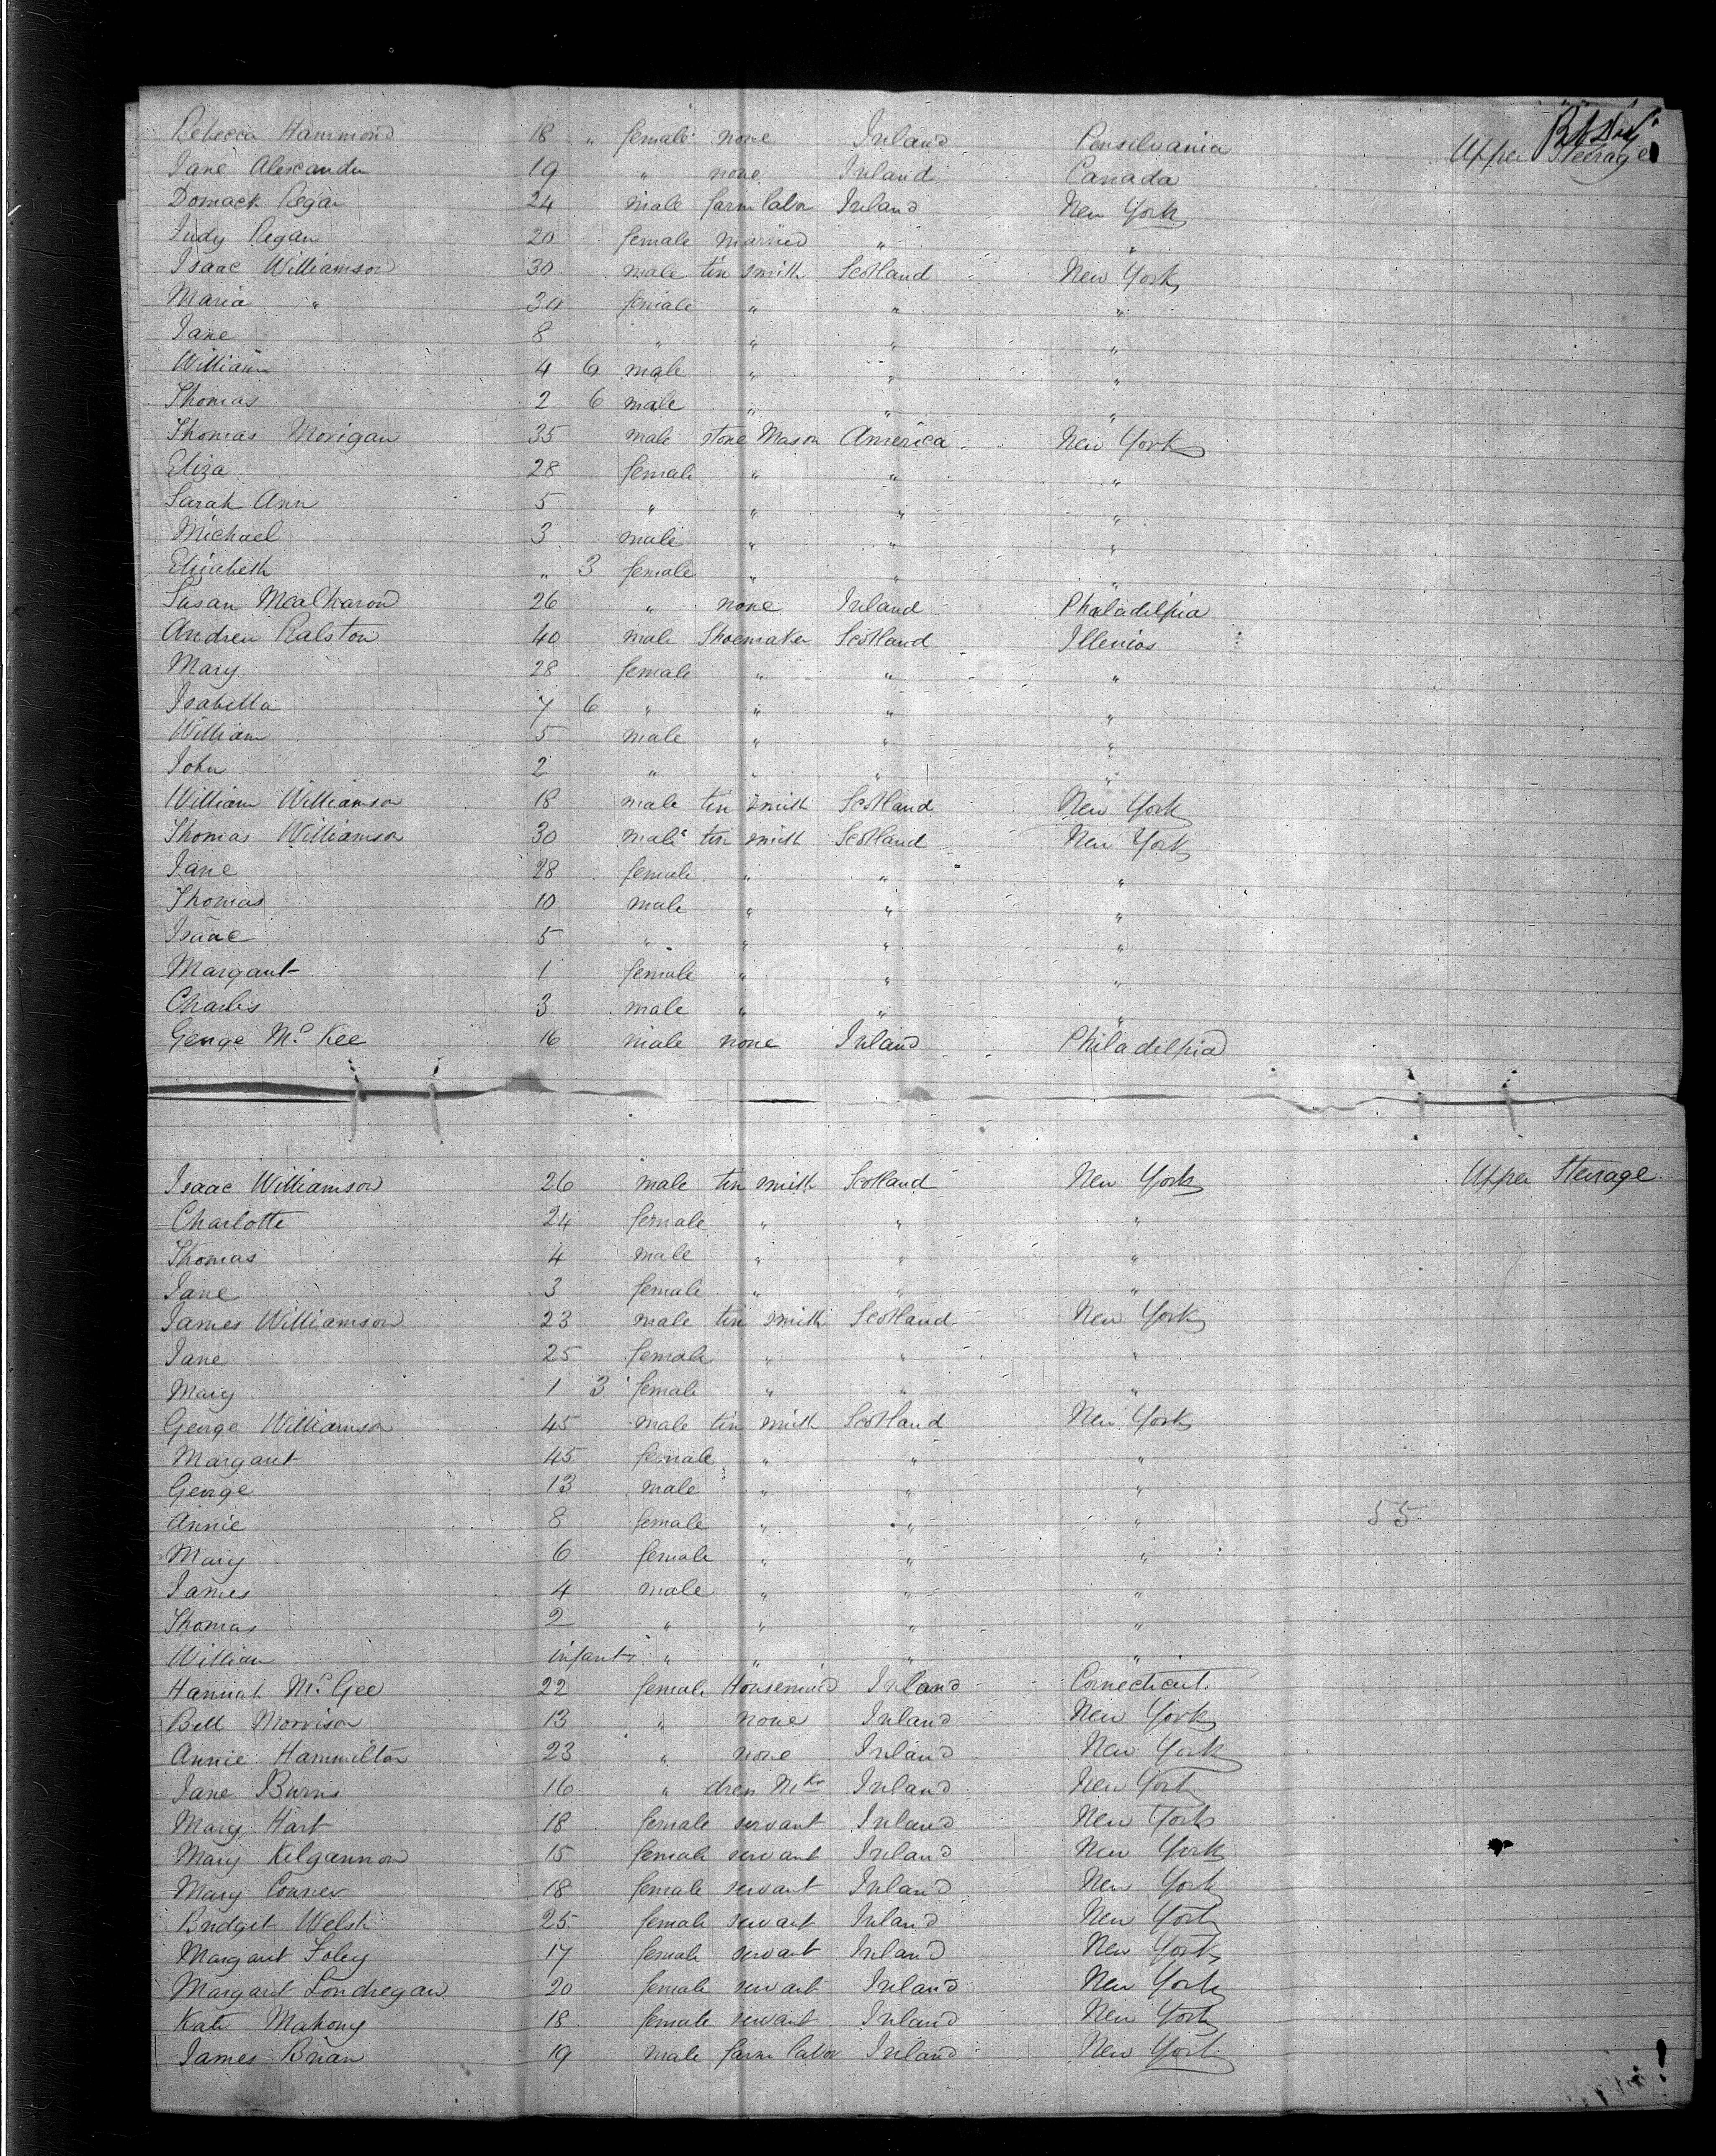 Rebecca Hammond 18 " female none Ireland Pensilvania Upper Steerage
Jane Alexander 19 " none Ireland Canada
Domack Regan 24 male farm labor Ireland New York
Judy Regan 20 female married " "
Isaac Williamson 30 male tin smith Scotland New York
Maria " 30 female " " "
Jane 8 " " " "
William 4 6 male " " "
Thomas 2 6 male " " "
Thomas Morigan 35 male stone Mason America New York
Eliza 28 female " " "
Sarah Ann 5 " " " "
Michael 3 male " " "
Elizibeth " 3 female " " "
Susan 26 " none Ireland Philadelpia
Andrew Ralston 40 male Shoemaker Scotland Illenios
Mary 28 female " " "
Isabella 7 6 " " " "
William 5 male " " "
John 2 " " " "
William Williamson 18 male tin smith Scotland New York
Thomas Williamson 30 male tin smith Scotland New York
Jane 28 female " " "
Thomas 10 male " " "
Isaac 5 " " " "
Margaret 1 female " " "
Charles 3 male " " "
George Mc Kee 16 male none Ireland Philadelpia
Isaac Williamson 26 male tin smith Scotland New York Upper Steerage
Charlotte 24 female " " "
Thomas 4 male " " "
Jane 3 female " " "
James Williamson 23 male tin smith Scotland New York
Jane 25 female " " "
Mary 1 3 female " " "
George Williamson 45 male tin smith Scotland New York
Margaret 45 female " " "
George 13 male " " "
Annie 8 female " " " 55
Mary 6 female " " "
James 4 male " " "
Thomas 2 " " " "
William infant " " " "
Hannah Mc Gee 22 female Housemaid Ireland Connecticut
Bell Morrison 13 " none Ireland New York
Annie Hammilton 23 " none Ireland New York
Jane Burns 16 " dress Mkr Ireland New York
Mary Hart 18 female servant Ireland New York
Mary Kilgannon 15 female servant Ireland New York
Mary Conner 18 female servant Ireland New York
Bridget Welsh 25 female servant Ireland New York
Margaret Foley 17 female servant Ireland New York
Margaret Londregan 20 female servant Ireland New York
Kate Mahony 18 female servant Ireland New York
James Brian 19 male farm labor Ireland New York